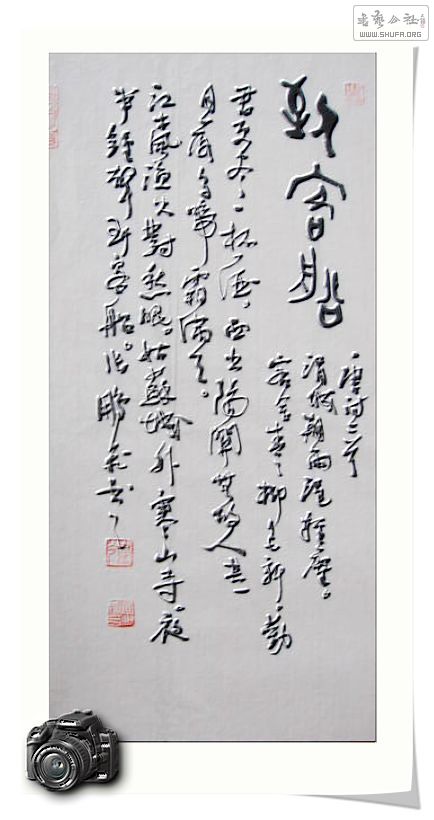 WWW.SHUFA.ORG
到客船
唐诗二首
渭城朝雨浥輕塵。
客舍青青柳色新，勸
君更尽一杯酒，西出陽關無故人 其一
月落乌啼霜满天。
江楓渔火對愁眠。姑蘇城外寒山寺，夜
半鐘聲到客船。